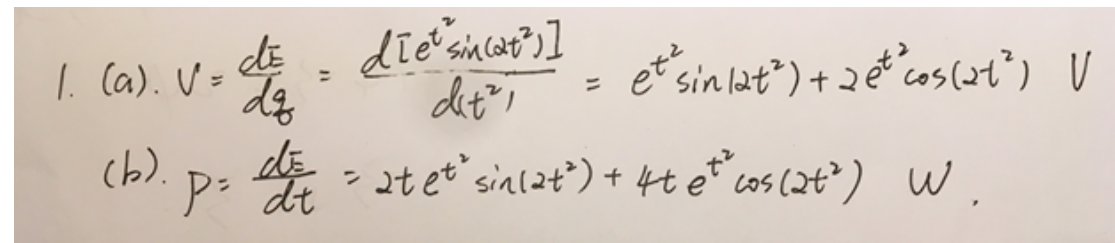 1. (a). V = dE/dq = d[e^t² sin(2t²)]/d(t²) = e^t² sin(2t²) + 2e^t² cos(2t²) V
(b). P = dE/dt = 2t e^t² sin(2t²) + 4t e^t² cos(2t²) W.